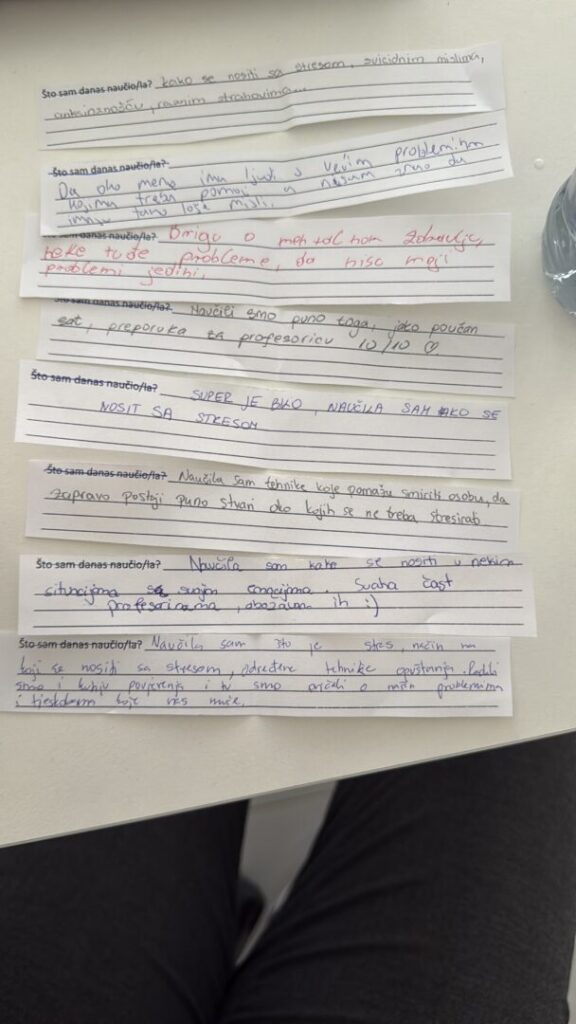 Što sam danas naučio/la? kako se nositi sa stresom, suicidnim mislima,
anksioznošću, raznim strahovima...
Što sam danas naučio/la?
Da oko mene ima ljudi s većim problemima
kojima treba pomoć i nisam znao da
imaju tako loše misli.
Što sam danas naučio/la? Brigu o mentalnom zdravlju,
neke tuđe probleme, da nisu moji
problemi jedini.
Što sam danas naučio/la? Naučili smo puno toga, jako poučan
sat, preporuka za profesoricu 10/10 ♡
Što sam danas naučio/la? SUPER JE BILO, NAUČILA SAM KAKO SE
NOSIT SA STRESOM
Što sam danas naučio/la? Naučila sam tehnike koje pomažu smiriti osobu, da
zapravo postoji puno stvari oko kojih se ne treba stresirati
Što sam danas naučio/la? Naučila sam kako se nositi u nekim
situacijama sa svojim emocijama. Svaka čast
profesoricama, obožavam ih :)
Što sam danas naučio/la? Naučila sam što je stres, način na
koji se nositi sa stresom, određene tehnike opuštanja.
smo i kutiju povjerenja i tu smo pričali o problemima
i tjeskobama koje nas muče.